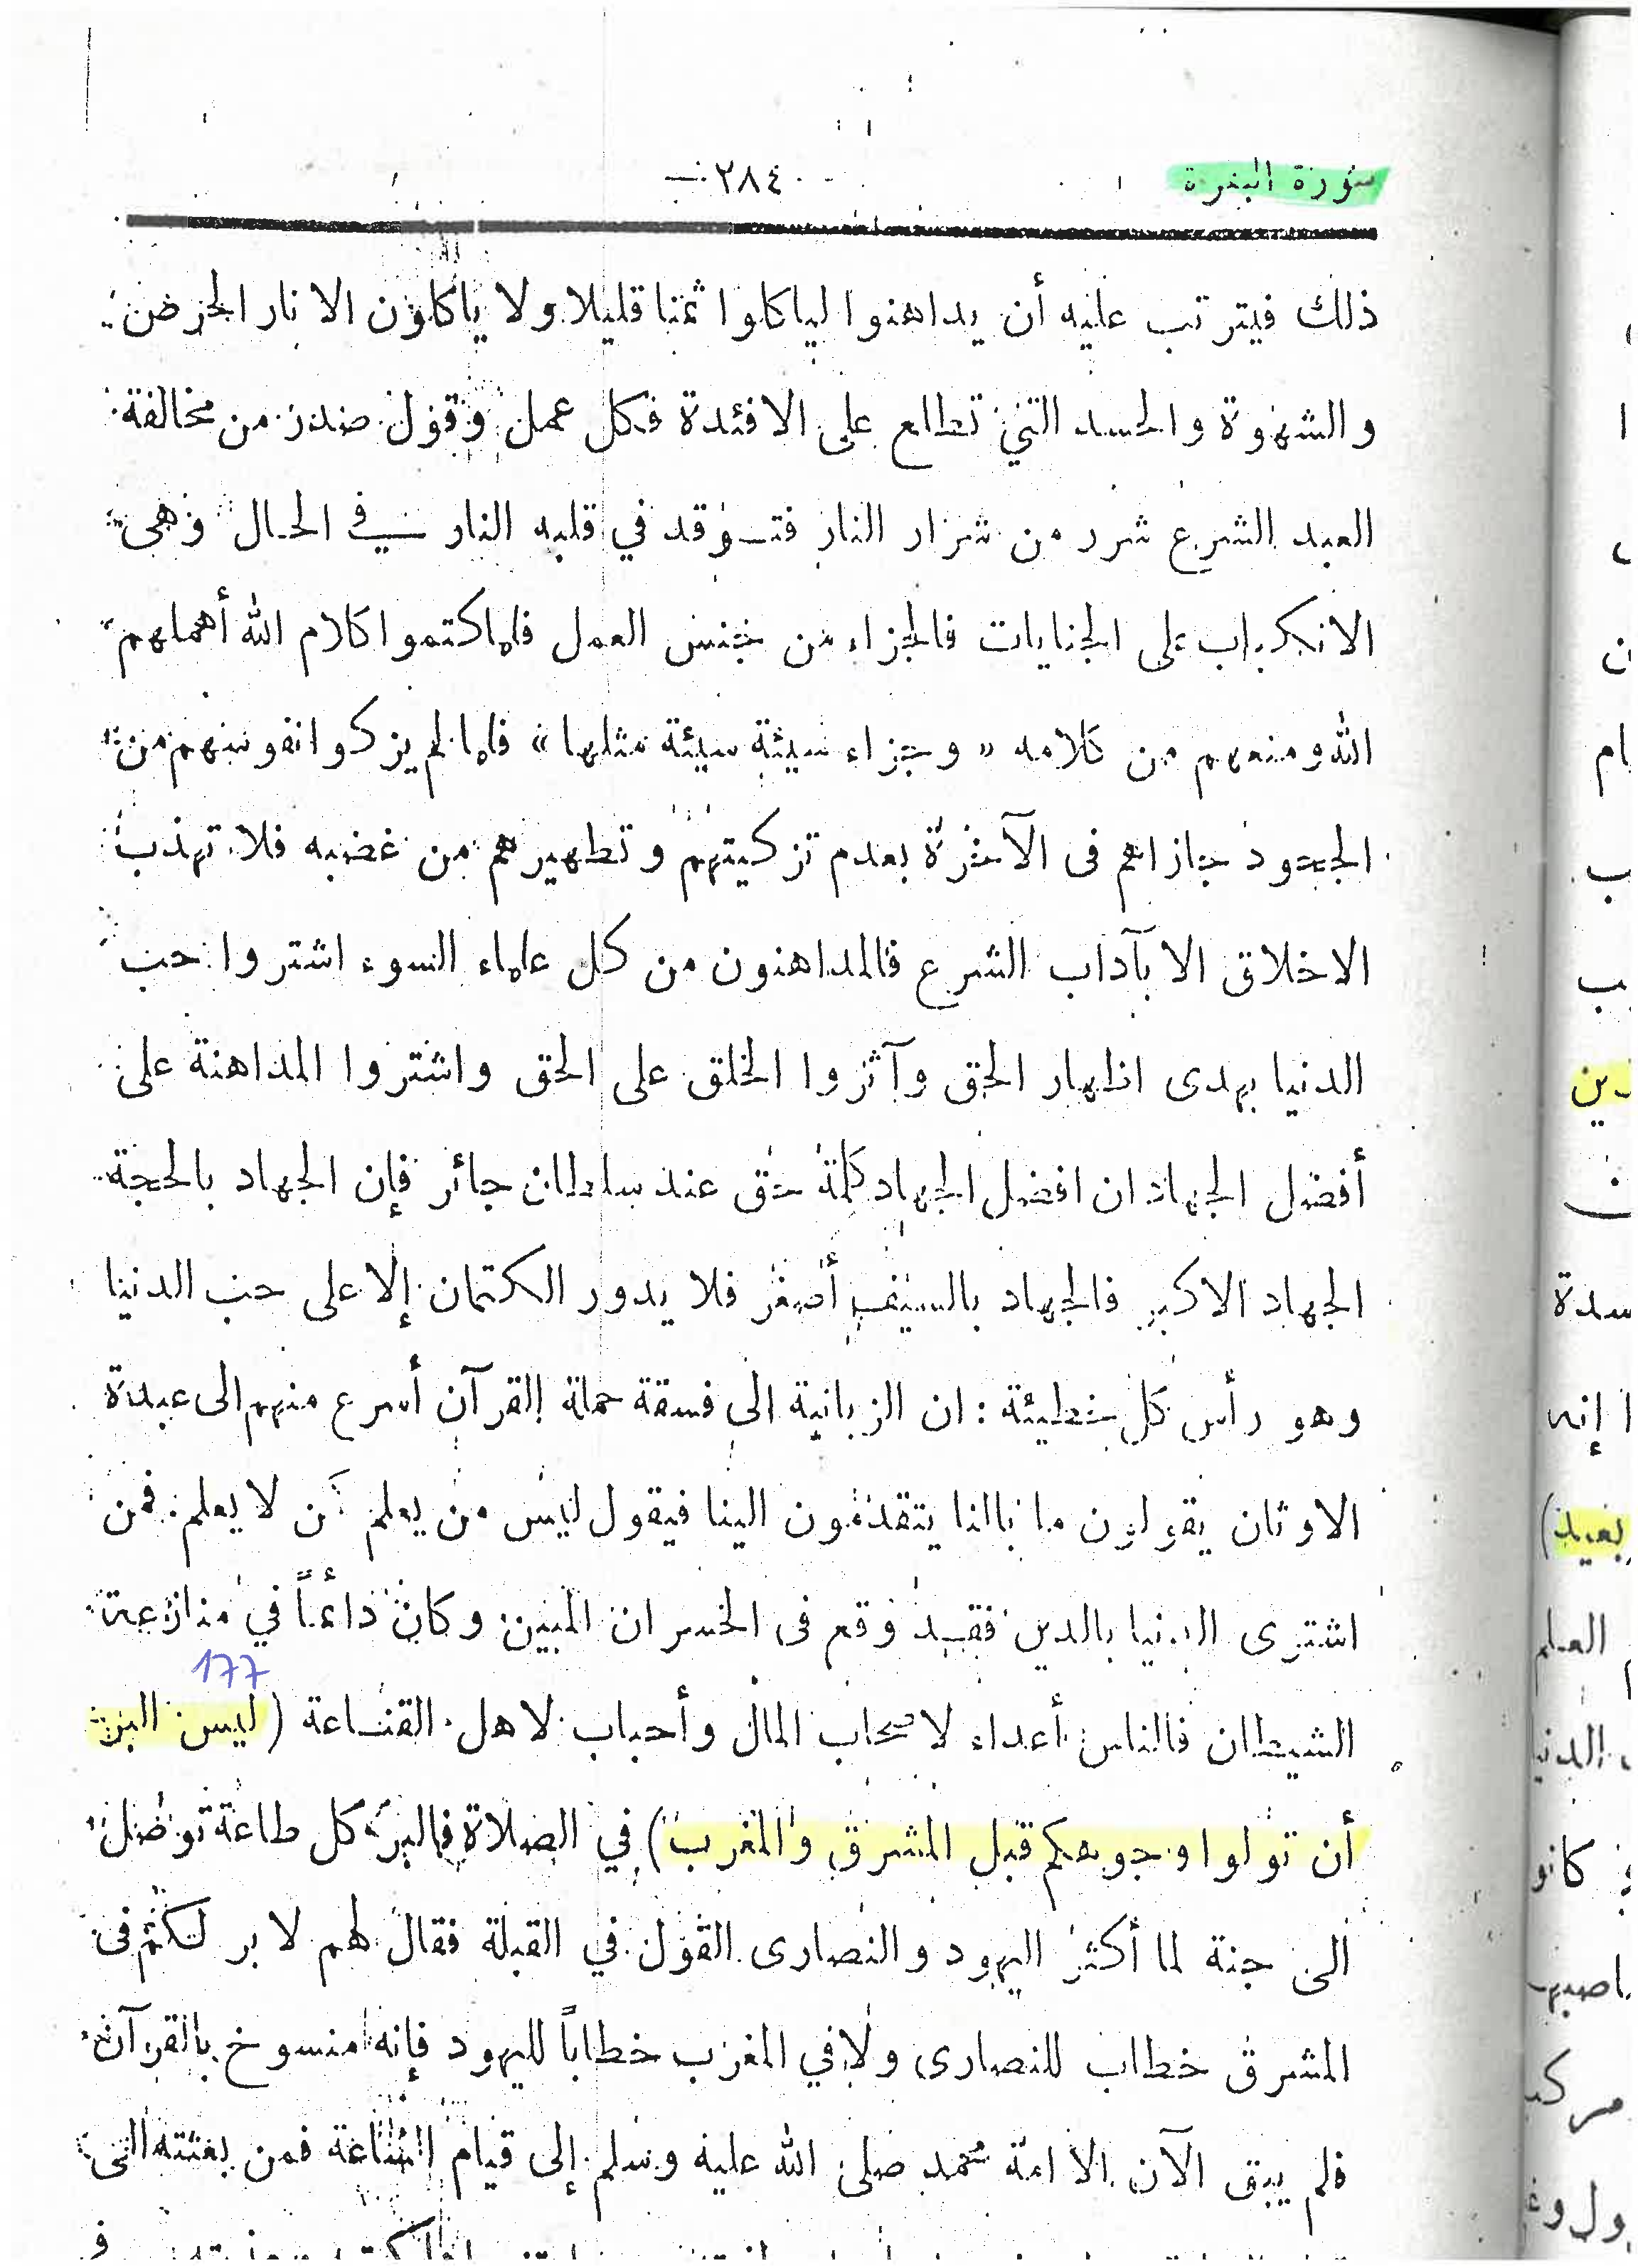 سورة البقرة
٢٨٤
ذلك فيترتب عليه أن يداهنوا لياكلوا ثمنا قليلا ولا ياكلون الا نار الحرص
والشهوة والحسد التي تطلع على الافئدة فكل عمل وقول صدر من مخالفة
العبد الشرع شرر من شرار النار فتوقد في قلبه النار في الحال وهى
الانكباب على الجنايات فالجزاء من جنس العمل فلما كتموا كلام الله أهملهم
الله ومنعهم من كلامه « وجزاء سيئة سيئة مثلها » فلما لم يزكوا نفوسهم من
الجحود جازاهم فى الآخرة بعدم تزكيتهم وتطهيرهم من غضبه فلا تهذب
الاخلاق الا بآداب الشرع فالمداهنون من كل علماء السوء اشتروا حب
الدنيا بهدى اظهار الحق وآثروا الخلق على الحق واشتروا المداهنة على
أفضل الجهاد ان افضل الجهاد كلمة حق عند سلطان جائر فإن الجهاد بالحجة
الجهاد الاكبر فالجهاد بالسيف أصغر فلا يدور الكتمان إلا على حب الدنيا
وهو رأس كل خطيئة : ان الزبانية الى فسقة حملة القرآن أسرع منهم الى عبدة
الاوثان يقولون ما بالنا يتقدمون الينا فيقول ليس من يعلم كمن لا يعلم فمن
اشترى الدنيا بالدين فقد وقع فى الخسران المبين وكان دائماً في منازعة
177
الشيطان فالناس أعداء لاصحاب المال وأحباب لاهل القناعة (ليس البر
أن تولوا وجوهكم قبل المشرق والمغرب) في الصلاة فالبر كل طاعة توصل
الى جنة لما أكثر اليهود والنصارى القول في القبلة فقال لهم لا بر لكم فى
المشرق خطاب للنصارى ولا في المغرب خطاباً لليهود فإنه منسوخ بالقرآن
فلم يبق الآن الا امة محمد صلى الله عليه وسلم إلى قيام الساعة فمن بعثته الى